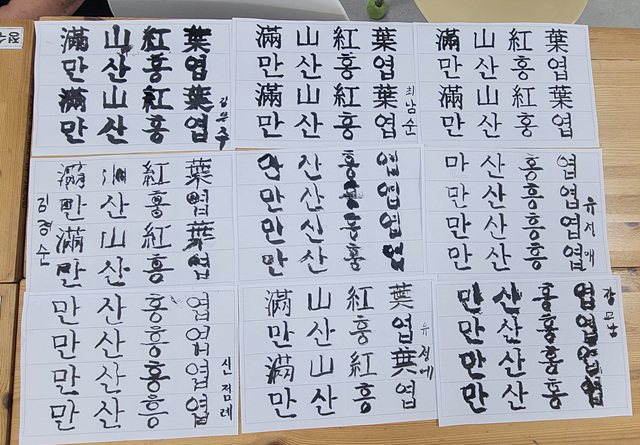 滿山紅葉
만산홍엽
滿山紅葉
만산홍엽
滿山紅葉
만산홍엽
滿山紅葉
만산홍엽
최남순
滿山紅葉
만산홍엽
滿山紅葉
만산홍엽
김경순
滿山紅葉
만산홍엽
滿山紅葉
만산홍엽
만산홍엽
만산홍엽
만산홍엽
만산홍엽
마산홍엽
만산홍엽
만산홍엽
만산홍엽
유지애
만산홍엽
만산홍엽
만산홍엽
만산홍엽
신점례
滿山紅葉
만산홍엽
滿山紅葉
만산홍엽
만산홍엽
만산홍엽
만산홍엽
만산홍엽